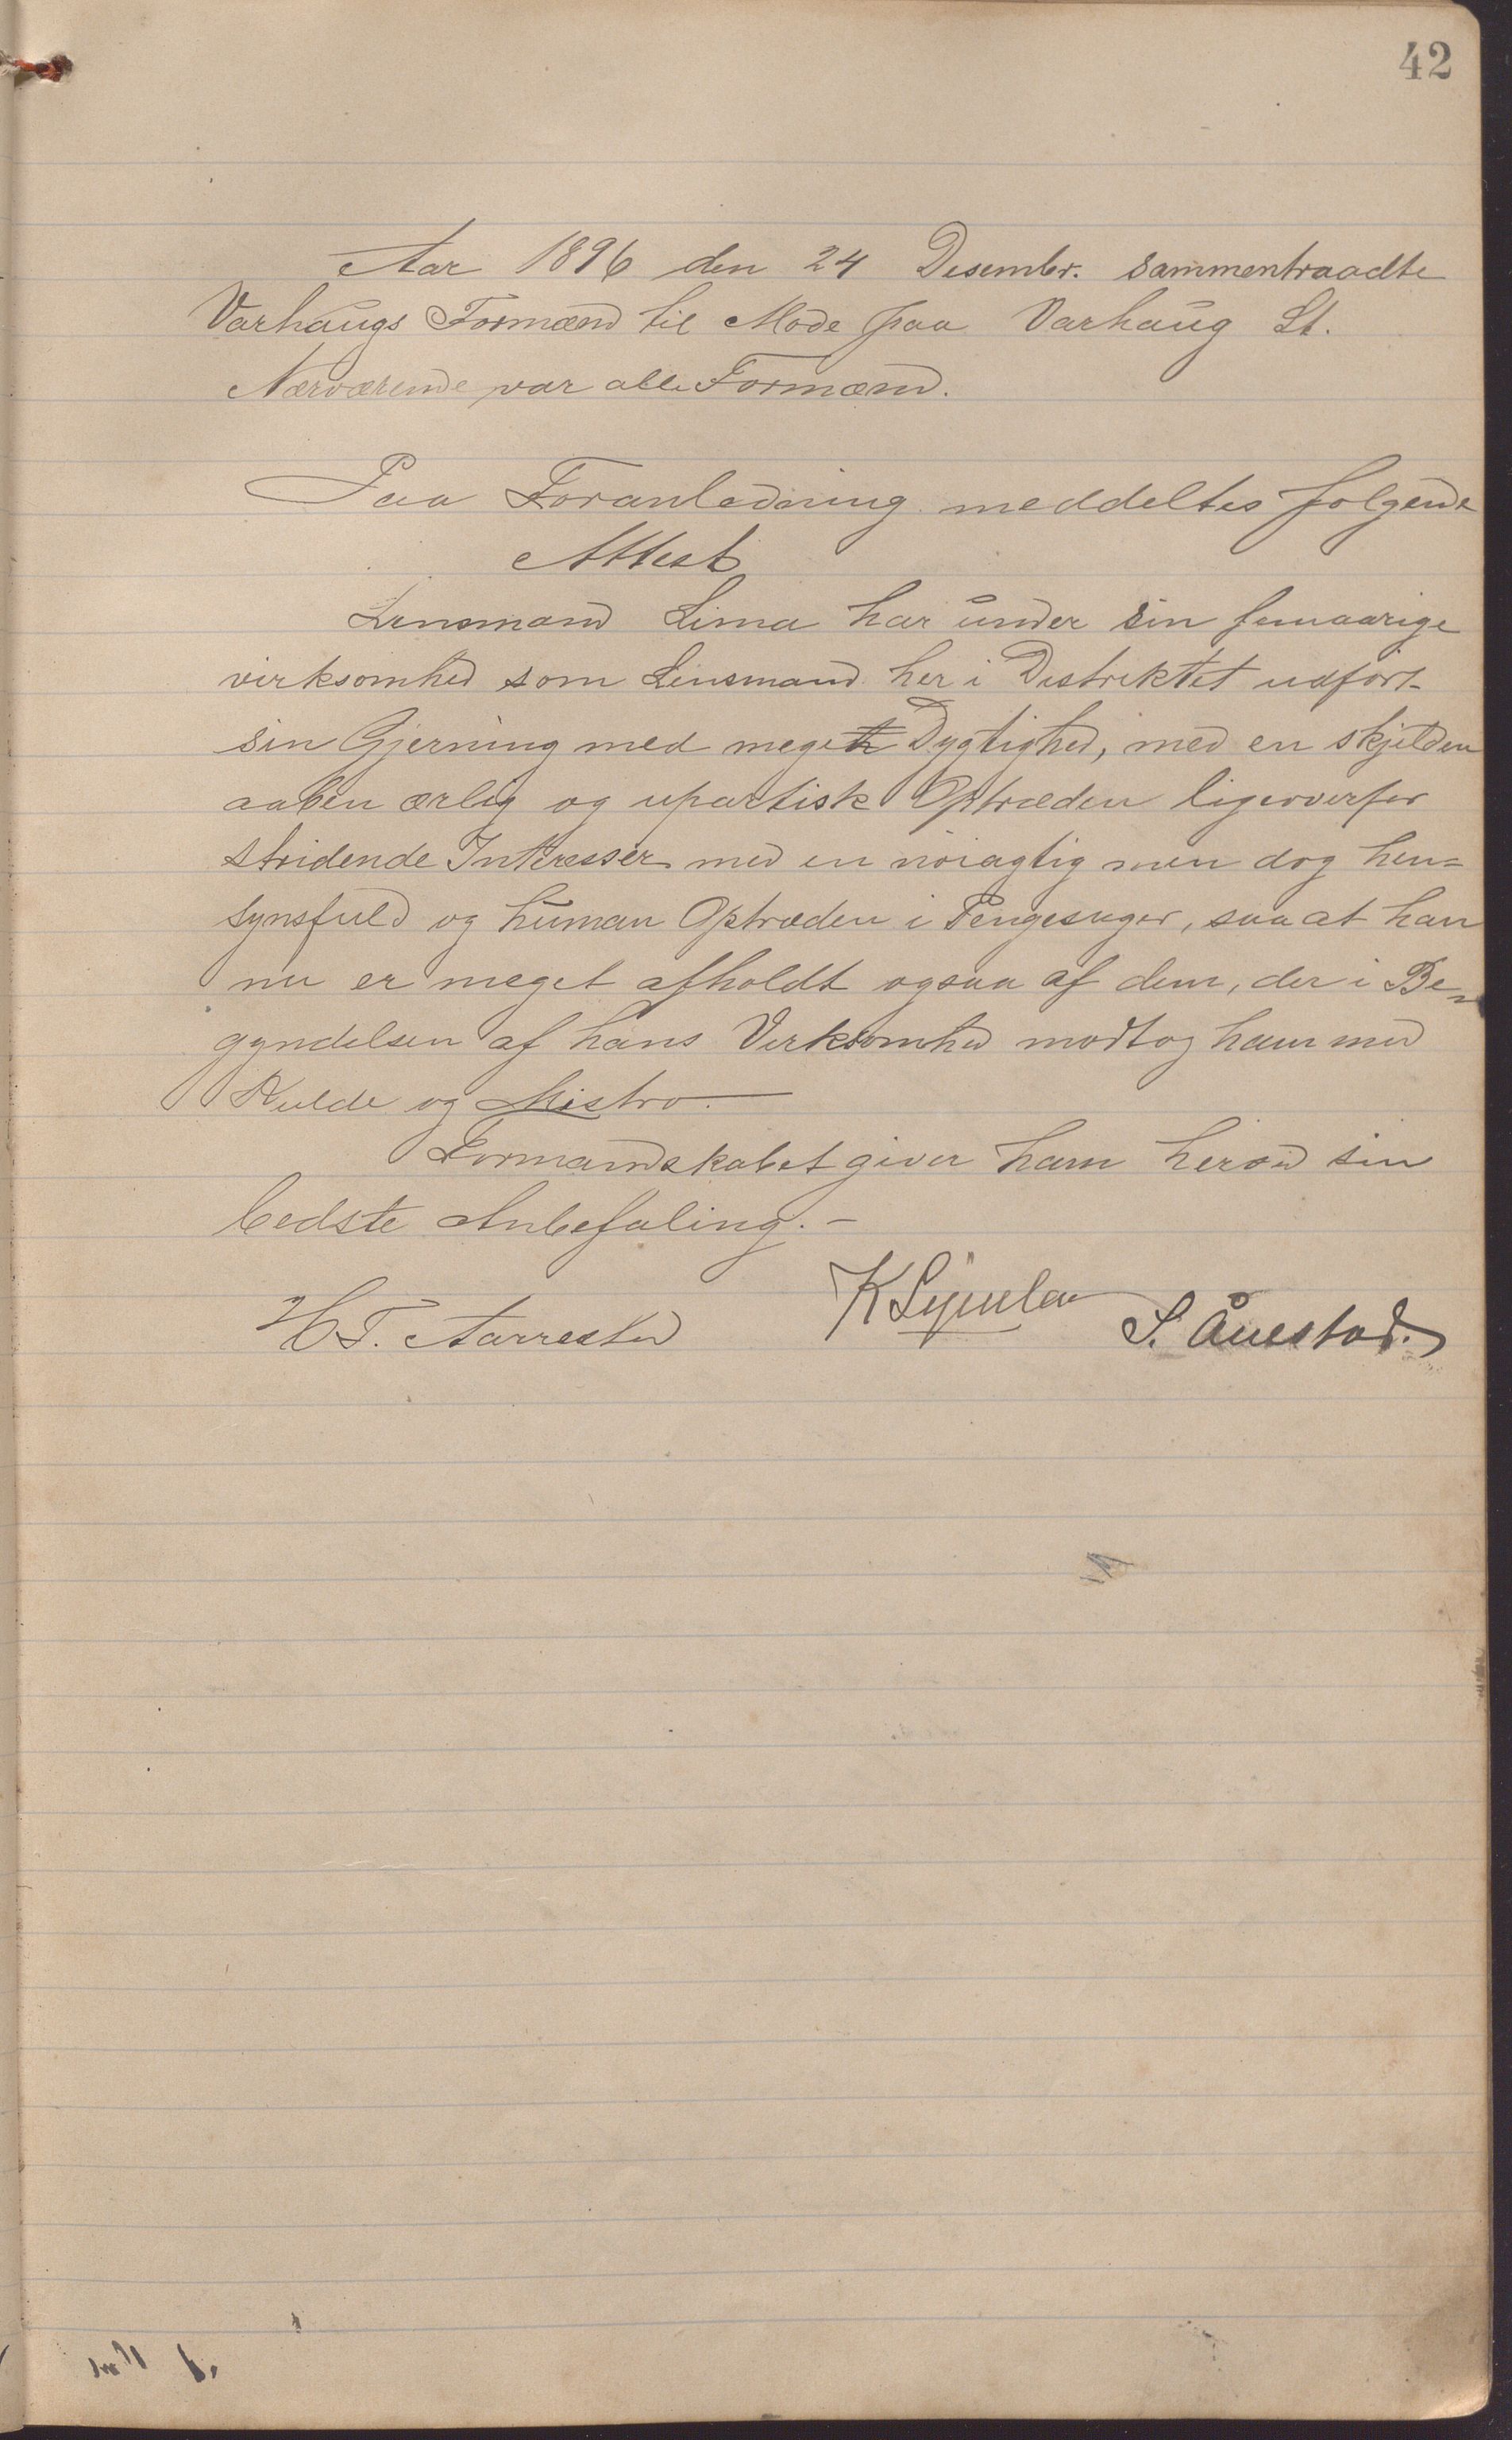 42
Aar 1896 den 24 Desembr. sammentraadte
Varhaugs Formænd til Mode paa Varhaug St.
Nærværende var alle Formænd.
Paa Foranledning meddeltes folgende
Attest
Lensmand Lima har under sin femaarige
virksomhed som Lensmand her i Distriktet udført
sin Gjerning med megen Dygtighed, med en skjelden
aaben ærlig og upartisk Optræden ligeoverfor
stridende Interesser med en nöiagtig men dog hen=
synsfuld og human Optræden i Pengesager, saa at han
nu er meget afholdt ogsaa af dem, der i Be=
gyndelsen af hans Virksomhed modtog ham med
Kulde og Mistro.
Formandskabet giver ham herved sin
bedste Anbefaling. –
H T. Aarrestad
K
S. Ånestad.